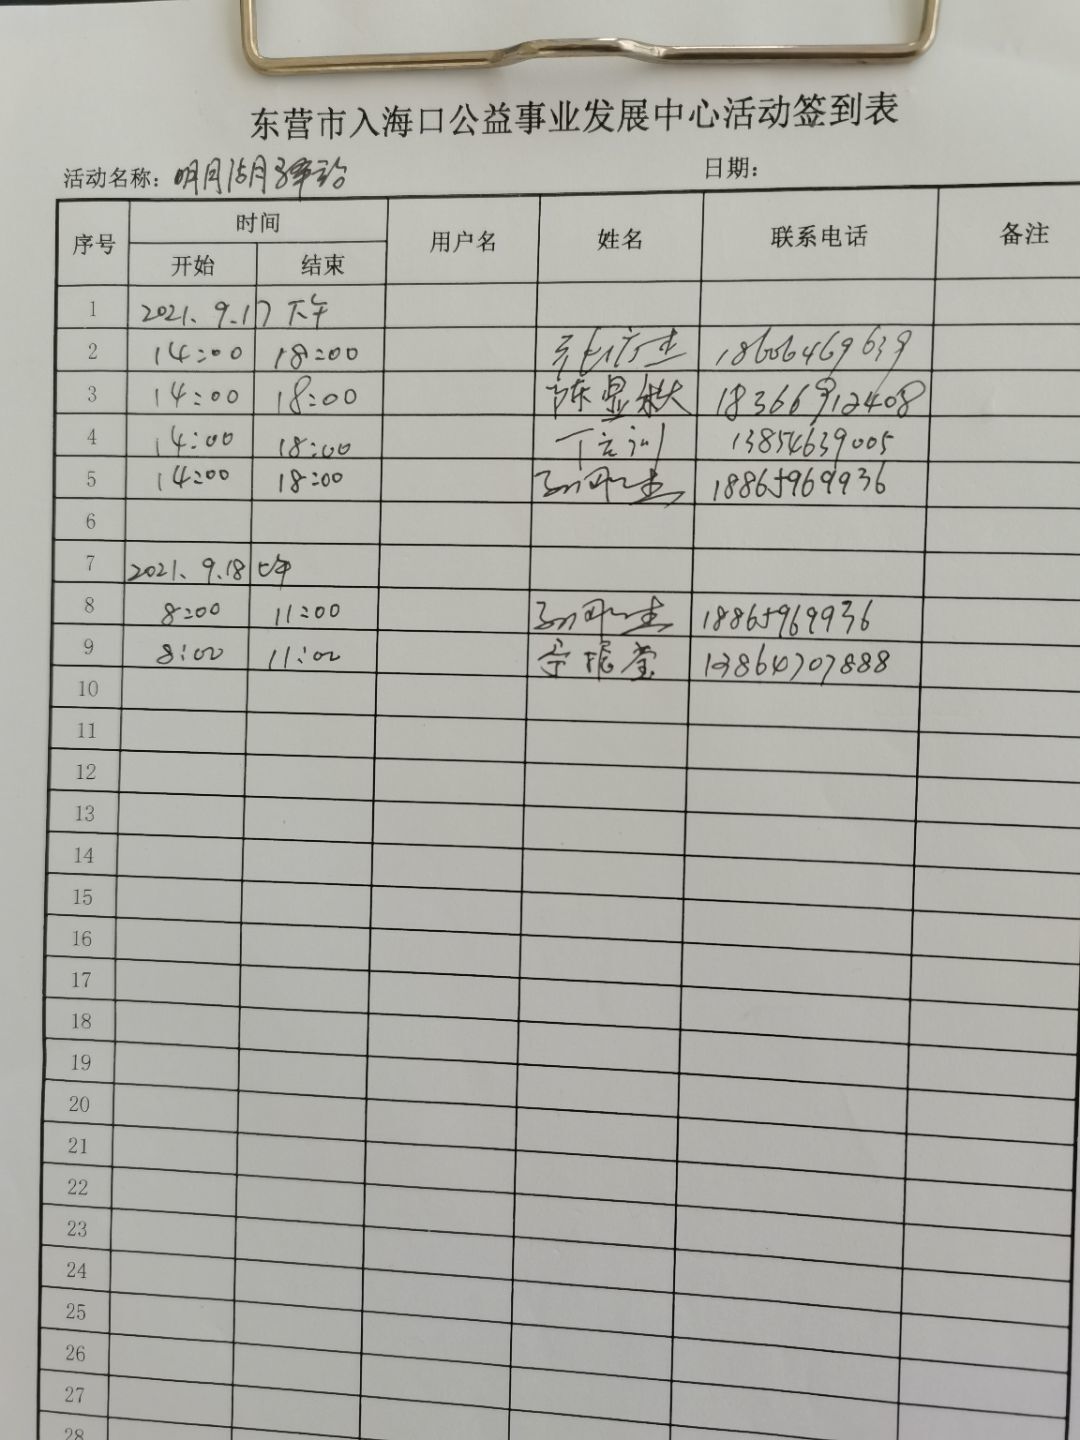 东营市入海口公益事业发展中心活动签到表
活动名称：明月湖驿站 日期：
序号 时间 用户名 姓名 联系电话 备注
开始 结束
1 2021.9.17 下午
2 14:00 18:00 18606469639
3 14:00 18:00 陈显秋 18366912408
4 14:00 18:00 丁 13854639005
5 14:00 18:00 18865969936
6
7 2021.9.18 上午
8 8:00 11:00 18865969936
9 8:00 11:00 振堂 13864707888
10
11
12
13
14
15
16
17
18
19
20
21
22
23
24
25
26
27
28